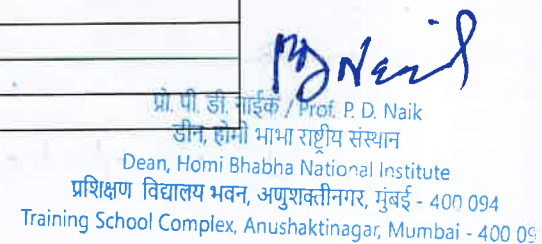 PD Naik
प्रो. पी. डी. नाईक / Prof. P. D. Naik
डीन, होमी भाभा राष्ट्रीय संस्थान
Dean, Homi Bhabha National Institute
प्रशिक्षण विद्यालय भवन, अणुशक्तीनगर, मुंबई - 400 094
Training School Complex, Anushaktinagar, Mumbai - 400 09